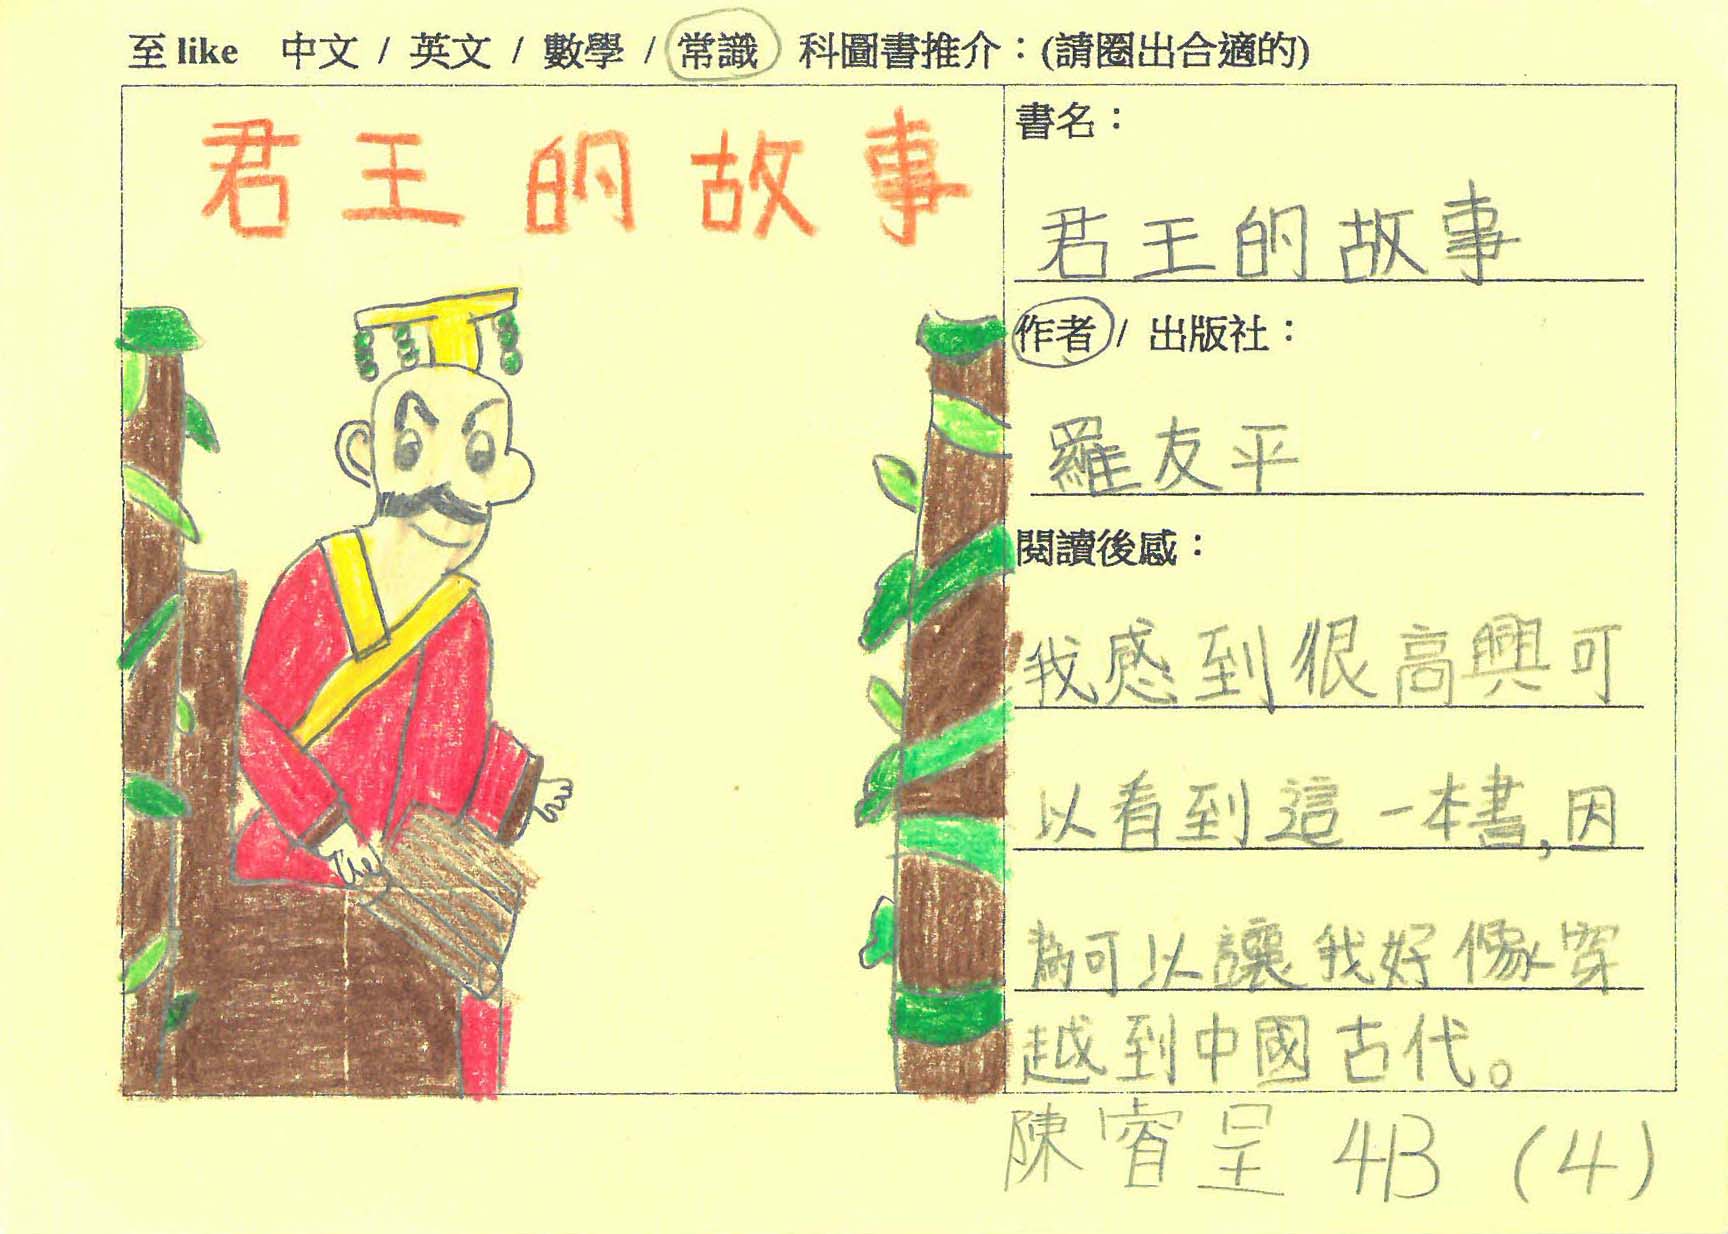 至 like 中文 / 英文 / 數學 / 常識 科圖書推介：(請圈出合適的)
君王的故事
書名：
君王的故事
作者 / 出版社：
羅友平
閱讀後感：
我感到很高興可
以看到這一本書,因
為可以讓我好像穿
越到中國古代。
陳睿呈 4B (4)